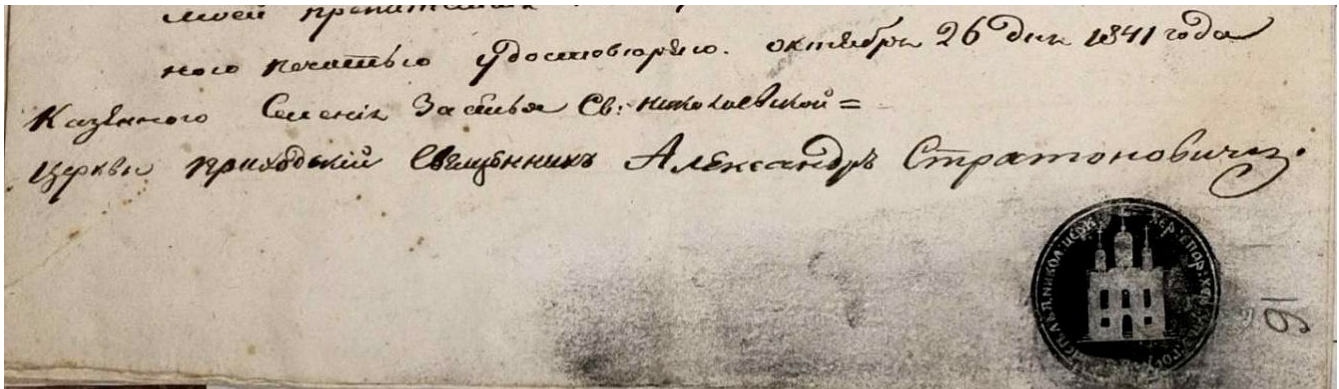 моей
ною печатью удостовѣряю. октября 26 дня 1841 года
Казенного Селенія Св: Николаевской=
церкви приходскій Священникъ Александръ Стратоновичъ.
НИКОЛ: ЦЕРК ХЕР:
16